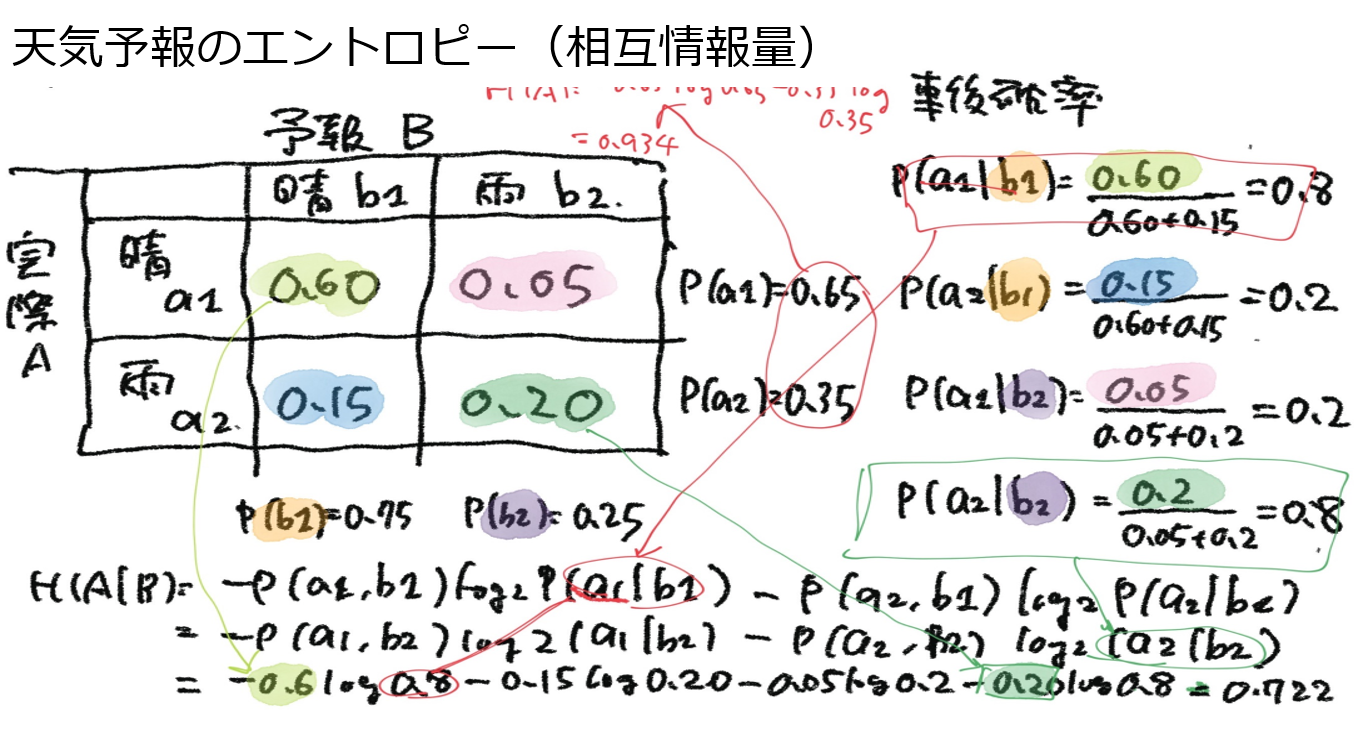 天気予報のエントロピー（相互情報量）
= 0.934
0.35
事後確率
予報 B
晴 b1 雨 b2.
実際 A
晴 a1 0.60 0.05 P(a1)=0.65
雨 a2. 0.15 0.20 P(a2)=0.35
P(b1)=0.75 P(b2)=0.25
P(a1|b1)= 0.60 / 0.60+0.15 =0.8
P(a2|b1) = 0.15 / 0.60+0.15 =0.2
P(a1|b2)= 0.05 / 0.05+0.2 =0.2
P(a2|b2) = 0.2 / 0.05+0.2 =0.8
H(A|B)= -P(a1,b1)log2 P(a1|b1) - P(a2,b1) log2 P(a2|b2)
= -P(a1,b2) log2(a1|b2) - P(a2,b2) log2 (a2|b2)
= -0.6log0.8-0.15log0.20-0.05log0.2-0.20log0.8=0.722